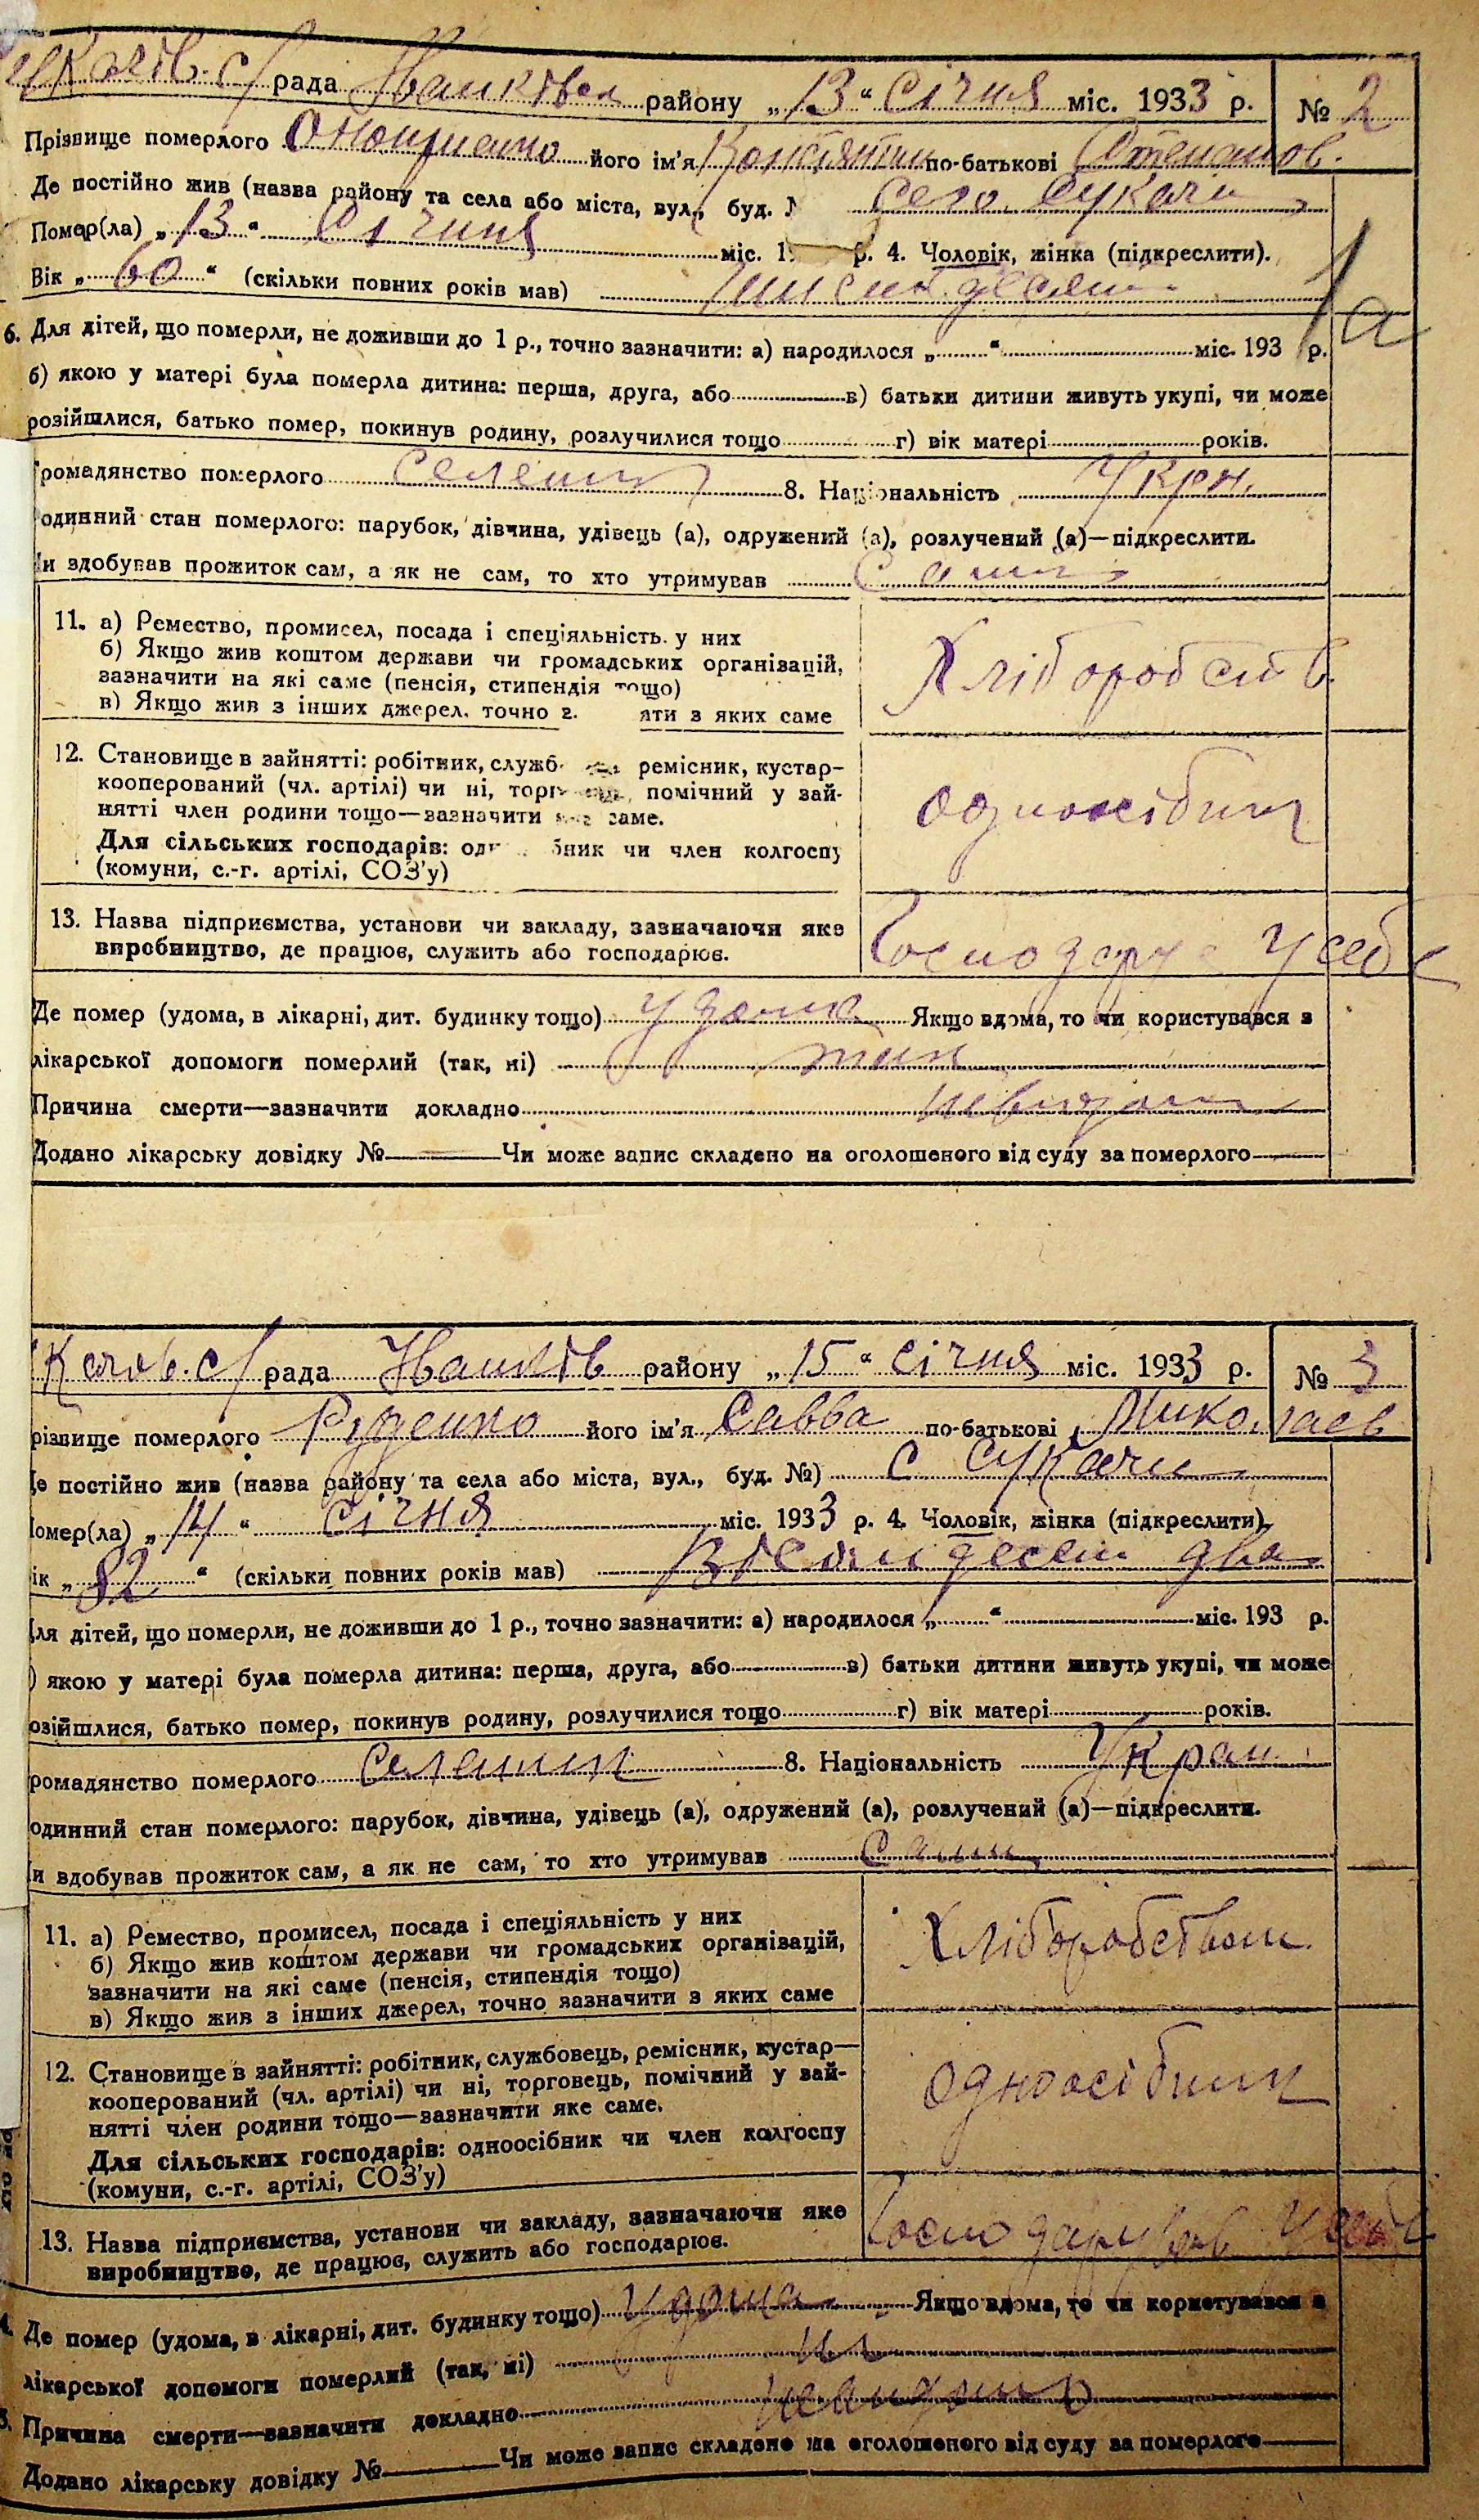 Сукачів. с/рада Іванківськ району „13“ Січня міс. 1933 р. № 2
Прізвище померлого Онопрієнко його ім'я Констянтин по-батькові Степанов.
Де постійно жив (назва району та села або міста, вул., буд. № село Сукачи
Помер(ла) „13“ Січня міс. 1 р. 4. Чоловік, жінка (підкреслити).
Вік „60“ (скільки повних років мав) шисьдесят
6. Для дітей, що померли, не доживши до 1 р., точно зазначити: а) народилося „ “ міс. 193 р.
б) якою у матері була померла дитина: перша, друга, або в) батьки дитини живуть укупі, чи може
розійшлися, батько помер, покинув родину, розлучилися тощо г) вік матері років.
громадянство померлого селянин 8. Національність Укрн.
одинний стан померлого: парубок, дівчина, удівець (а), одружений (а), розлучений (а)—підкреслити.
и здобував прожиток сам, а як не сам, то хто утримував Сам
11. а) Ремество, промисел, посада і спеціяльність у них
б) Якщо жив коштом держави чи громадських організацій,
зазначити на які саме (пенсія, стипендія тощо)
в) Якщо жив з інших джерел, точно з яти з яких саме
Хліборобств.
12. Становище в зайнятті: робітник, служб ремісник, кустар-
кооперований (чл. артілі) чи ні, торг помічний у зай-
нятті член родини тощо—зазначити яке саме.
Для сільських господарів: од бник чи член колгоспу
(комуни, с.-г. артілі, СОЗ'у)
одноосібник
13. Назва підприємства, установи чи закладу, зазначаючи яке
виробництво, де працює, служить або господарює.
Господарує У себе
Де помер (удома, в лікарні, дит. будинку тощо) у дома Якщо вдома, то чи користувався з
лікарської допомоги померлий (так, ні) так
Причина смерти—зазначити докладно невидом
Додано лікарську довідку № Чи може запис складено на оголошеного від суду за померлого
Качів. с/рада Іванків району „15“ Січня міс. 1933 р. № 3
різвище померлого Руденко його ім'я Савва по-батькові Миколаєв
Де постійно жив (назва району та села або міста, вул., буд. №) с Сукачи
помер(ла) „14“ Січня міс. 1933 р. 4. Чоловік, жінка (підкреслити)
ік „82“ (скільки повних років мав) Вісімдесят два
Для дітей, що померли, не доживши до 1 р., точно зазначити: а) народилося „ “ міс. 193 р.
) якою у матері була померла дитина: перша, друга, або в) батьки дитини живуть укупі, чи може
озійшлися, батько помер, покинув родину, розлучилися тощо г) вік матері років.
ромадянство померлого Селянин 8. Національність Украи
одинний стан померлого: парубок, дівчина, удівець (а), одружений (а), розлучений (а)—підкреслити.
и здобував прожиток сам, а як не сам, то хто утримував Сам
11. а) Ремество, промисел, посада і спеціяльність у них
б) Якщо жив коштом держави чи громадських організацій,
зазначити на які саме (пенсія, стипендія тощо)
в) Якщо жив з інших джерел, точно зазначити з яких саме
Хліборобством
12. Становище в зайнятті: робітник, службовець, ремісник, кустар—
кооперований (чл. артілі) чи ні, торговець, помічний у зай-
нятті член родини тощо—зазначити яке саме.
Для сільських господарів: одноосібник чи член колгоспу
(комуни, с.-г. артілі, СОЗ'у)
одноосібник
13. Назва підприємства, установи чи закладу, зазначаючи яке
виробництво, де працює, служить або господарює.
Господарував У себе
Де помер (удома, в лікарні, дит. будинку тощо) удома Якщо вдома, то чи користувався з
лікарської допомоги померлий (так, ні) ні
Причина смерти—зазначити докладно
Додано лікарську довідку № Чи може запис складено на оголошеного від суду за померлого